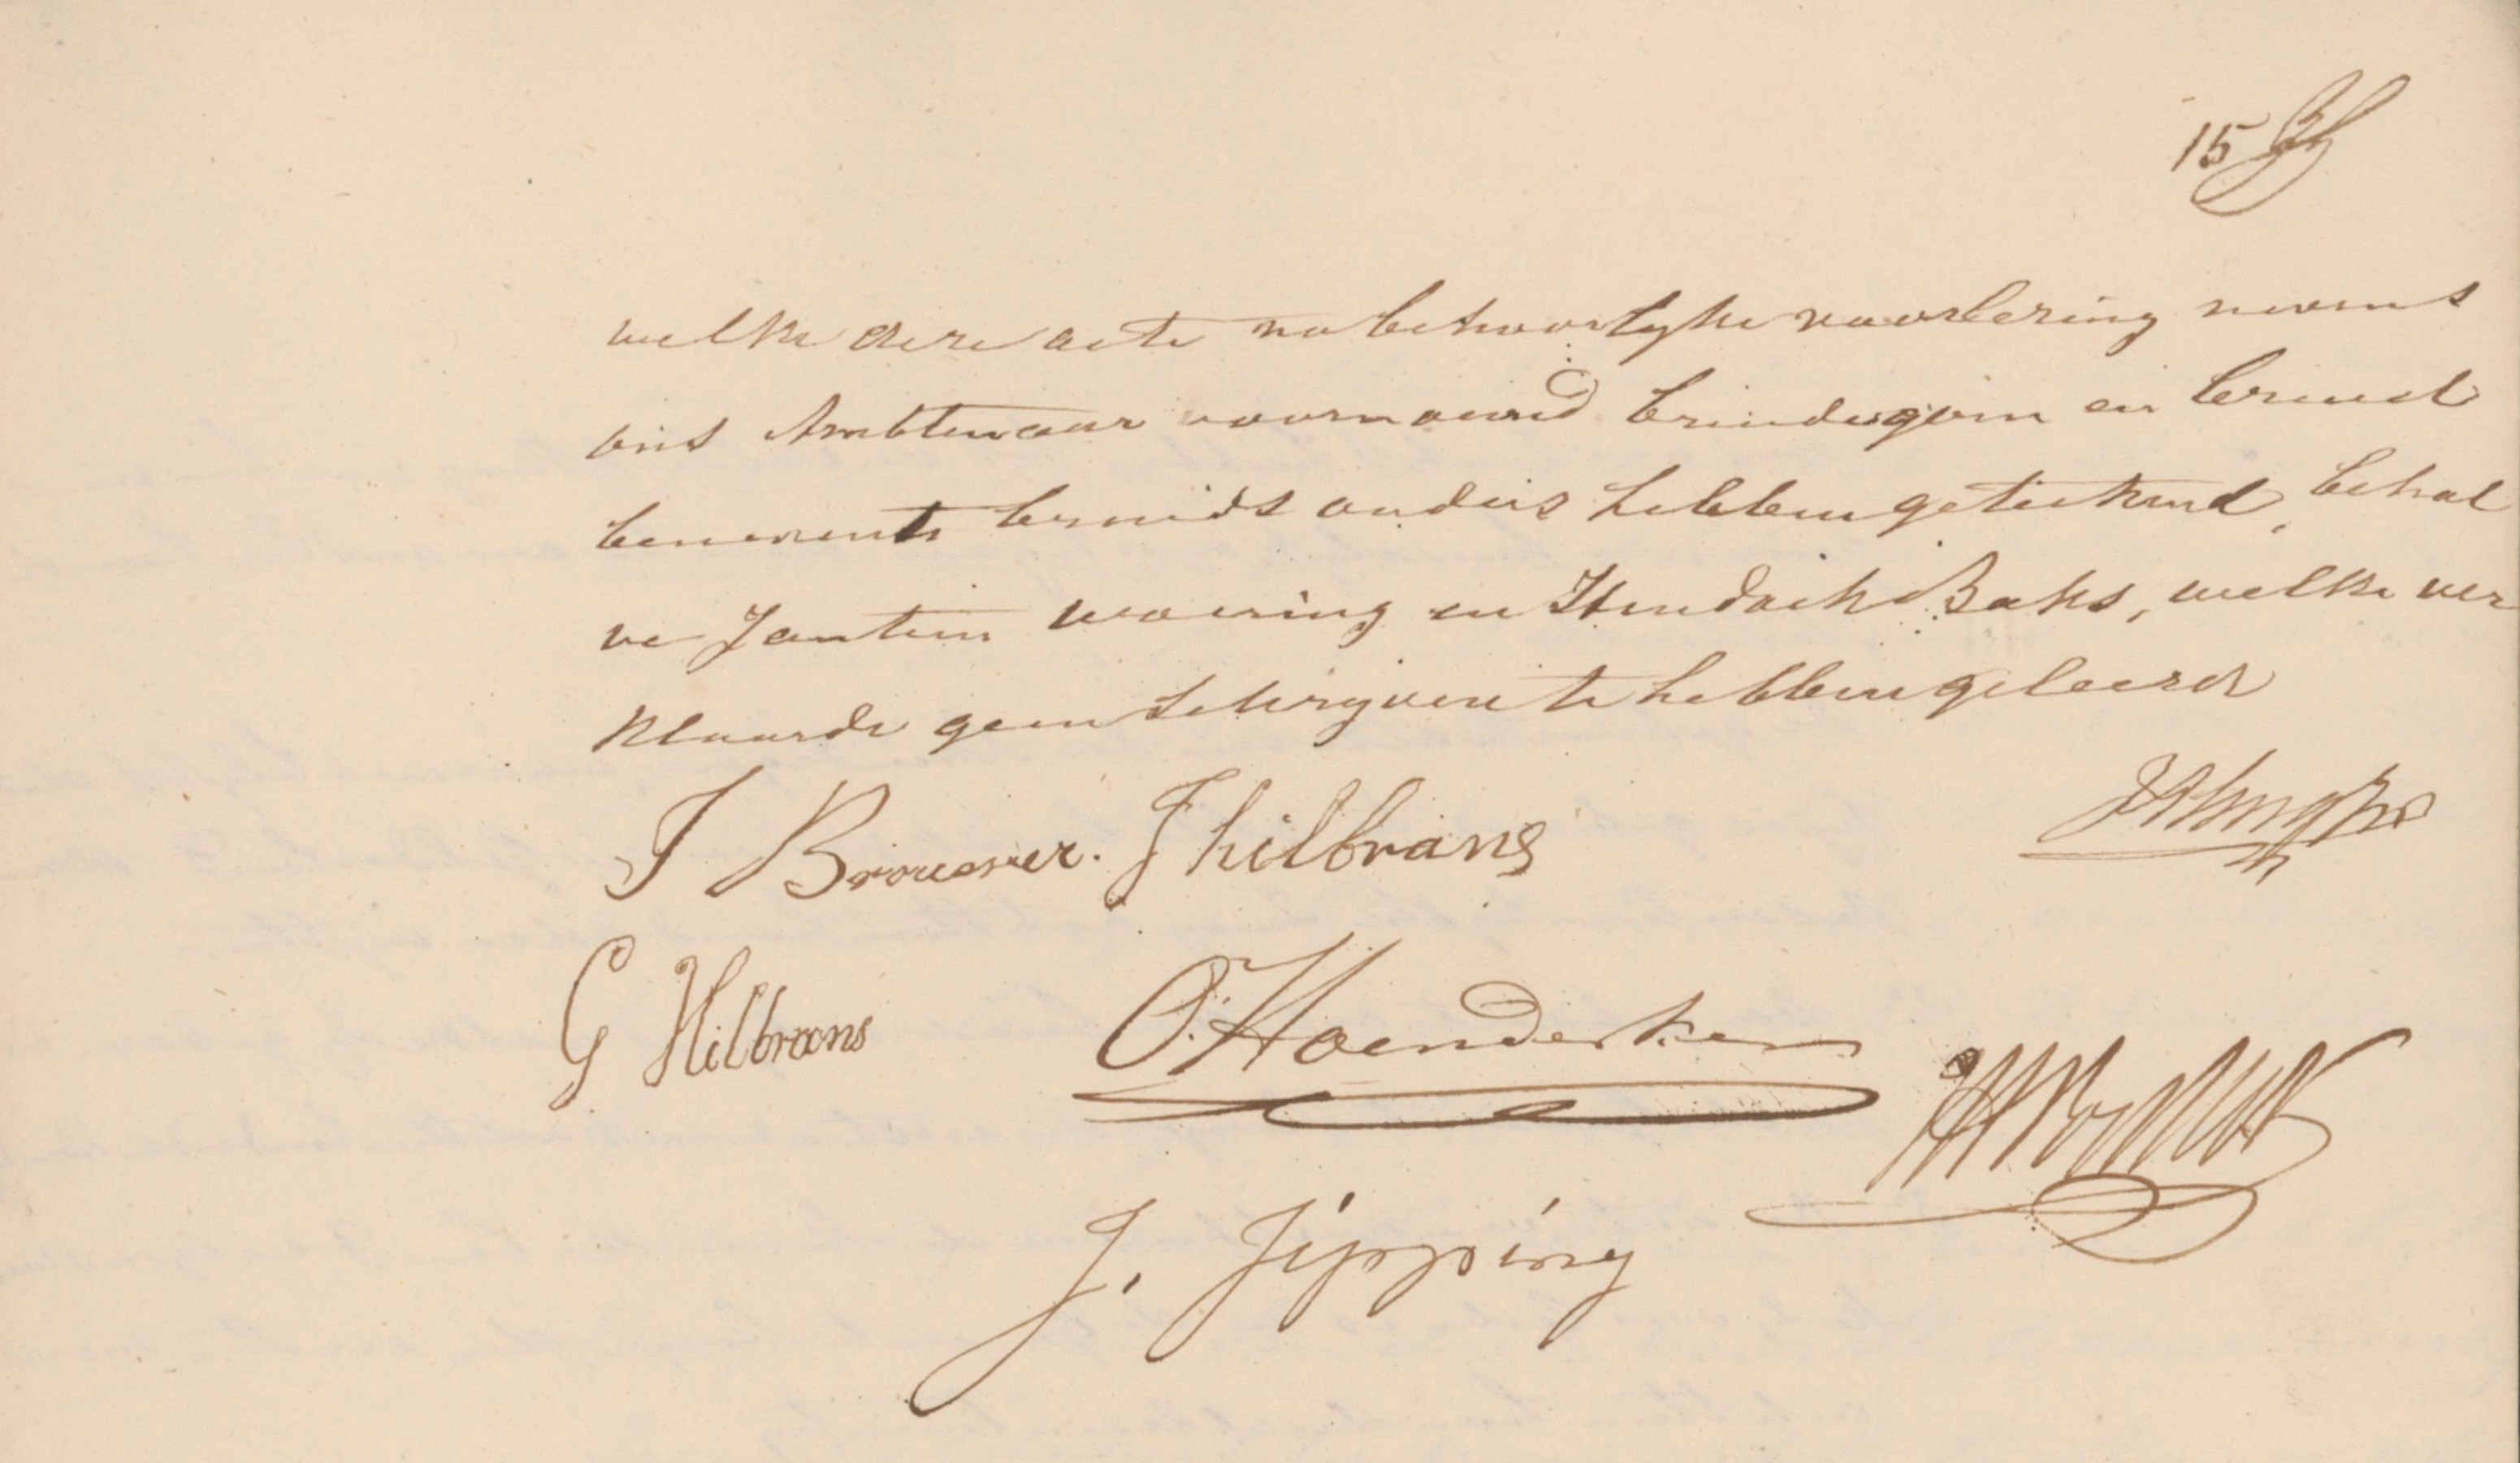 15
welke deze acte na behoorlyke voorlezing nevens
ons Ambtenaar voornoemd bruidegom en bruid
benevens bruids ouders hebben geteekend, behal
ve Jantien woering en Hendrik Baks, welke ver
klaarde geen schryven te hebben geleerd
J Brouwer. J hilbrans
G Hilbrans O. Hoenderken
J. Jipping